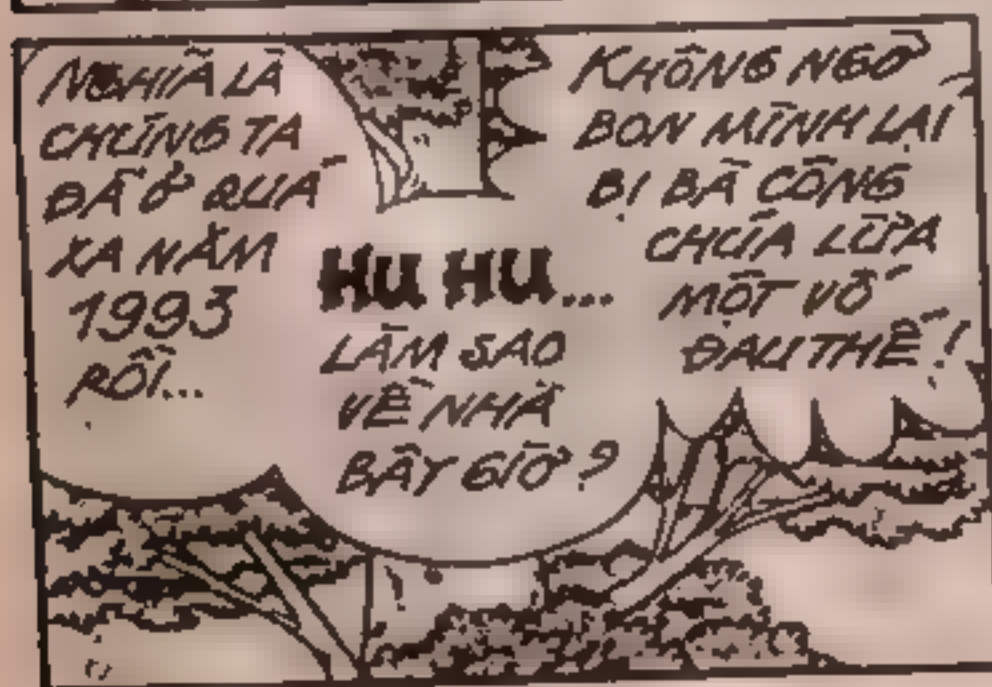 NGHĨA LÀ
CHÚNG TA
ĐÃ Ở QUÁ
XA NĂM
1993
RỒI...
HU HU...
LÀM SAO
VỀ NHÀ
BÂY GIỜ?
KHÔNG NGỜ
BỌN MÌNH LẠI
BỊ BÀ CÔNG
CHÚA LỪA
MỘT VỐ
ĐAU THẾ!